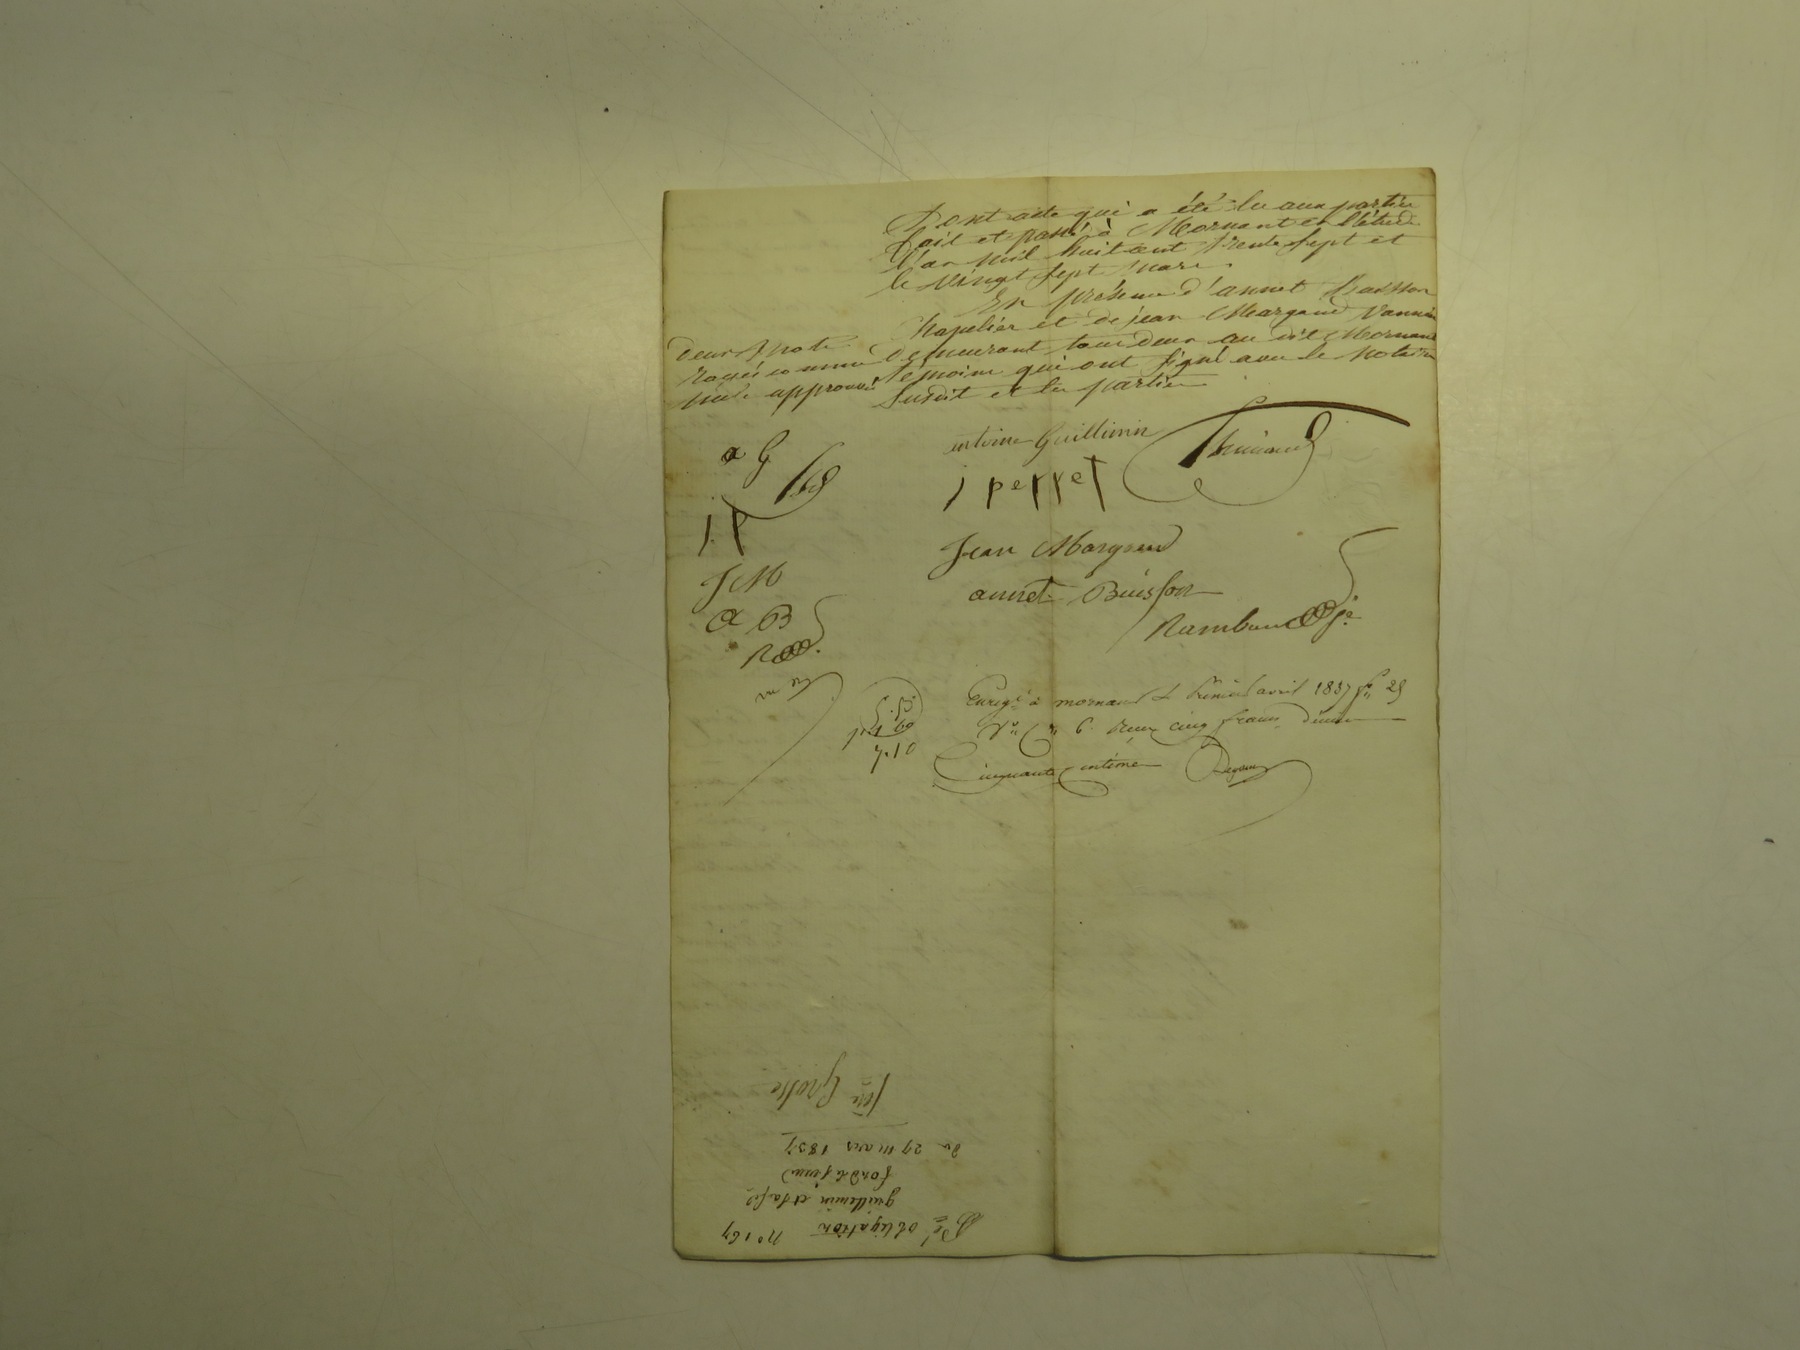 Dont acte qui a été lu aux parties
fait et passé à Mornant en l'étude
l'an mil huit cent trente sept et
le vingt sept mars.
En présence d'annet Buisson
Chapelier et de jean Margaud
demeurant tous deux au dit Mornant
témoins qui ont signé avec le notaire
susdit et les parties
deux mots
rayés comme
nuls approuvés
a G
j. P
J M
a B
antoine Guillimin
j perret
Jean Margaud
annet Buisson
Enregé à mornant le premier avril 1837 fo 25
Vo Co 6. Reçu cinq francs, décime
Cinquante centimes
5.50
1.60
7.10
obligation no 167
guillemin et
du 27 mars 1837
1ere Grosse